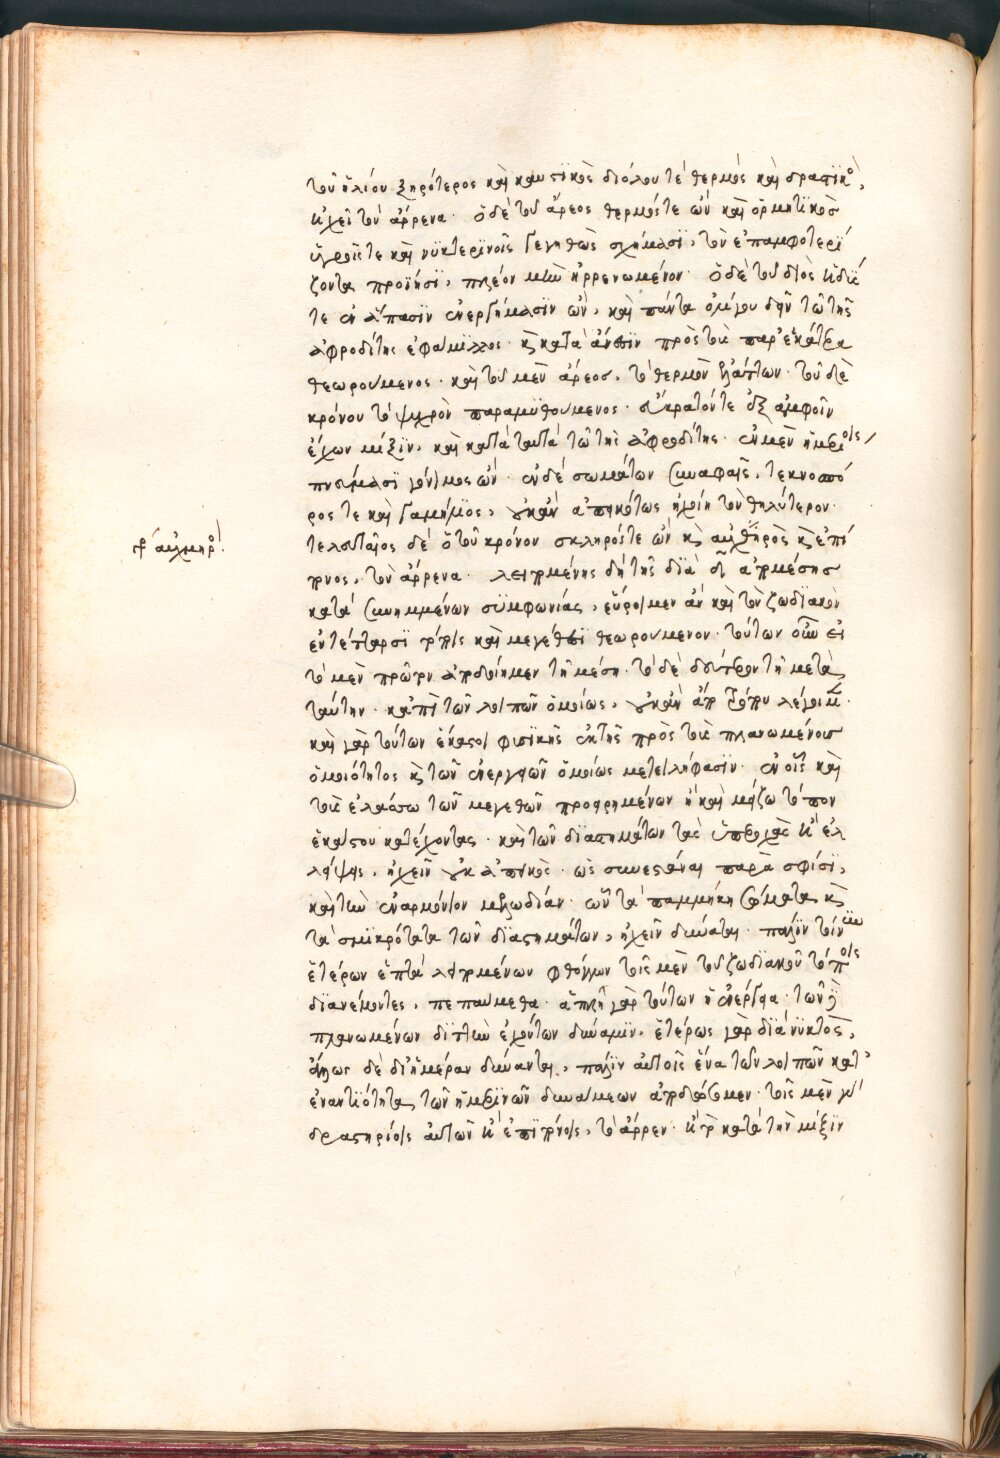 τοῦ ἡλίου ξηρότερος καὶ καυστικὸς διόλου τὲ θερμός καὶ δραστικός,
ἠχεῖ τὸν ἄρρενα· ὁ δὲ τοῦ ἄρεος θερμός τε ὢν καὶ ὁρμητικὸς
ὑγροῖς τε καὶ νυκτερινοῖς γεγηθὼς σχήμασϊ, τὸν ἐπαμφοτερί
ζοντα προΐησϊ, πλέον μὴν ἠρρενωμένον· ὁ δὲ τοῦ διὸς ἡδὺς
τε ἐν ἅπασϊν ἐνεργήμασϊν ὢν, καὶ πάντα ὀλίγου δεῖν τῶ τῆς
ἀφροδίτης ἐφάμιλλος· καὶ κατὰ ἄνεσϊν πρὸς τοὺς παρ' ἑκάτερα
θεωρούμενος· καὶ τοῦ μὲν ἄρεος, τὸ θερμὸν βλάπτων· τοῦ δὲ
κρόνου τὸ ψυχρὸν παραμυθούμενος· εὔκρατόν τε ἐξ ἀμφοῖν
ἔχων μίξϊν, καὶ κατὰ ταυτὰ τῶ τῆς ἀφροδίτης· ἐν μὲν ἡμερίοις
πνεύμασϊ γόνιμος ὢν· ἐν δὲ σωμάτων συναφαῖς, τεκνοσπό
ρος τε καὶ γαμήλιος, οὐκ ἂν ἀπεικότως ἠχοίη τὸν θηλύτερον·
τελευταῖος δὲ ὁ τοῦ κρόνου σκληρός τε ὢν καὶ αὐχμηρὸς καὶ ἐπί
πονος, τὸν ἄρρενα· λειπομένης δὴ τῆς διὰ ἀπὸ μέσης
κατὰ συνημμένων συμφωνίας, εὕροιμεν ἂν καὶ τὸν ζωδιακὸν
ἐν τέτταρσι τρόποις καὶ μεγέθεσϊ θεωρούμενον· τούτων οὖν εἰ
τὸ μὲν πρῶτον ἀποδοίημεν τῇ μέσῃ· τὸ δὲ δεύτερον τῇ μετὰ
ταύτην· κἀπὶ τῶν λοιπῶν ὁμοίως, οὐκ ἂν ἀπὸ τρόπου λέγοιμεν·
καὶ γὰρ τούτων ἕκαστοι φυσικῆς ἐκ τῆς πρὸς τοὺς πλανωμένους
ὁμοιότητος καὶ τῶν ἐνεργειῶν ὁμοίως μετειλήφασϊν· ἐν οἷς καὶ
τοὺς ἐλάσσω τῶν μεγεθῶν προειρημένων ἢ καὶ μείζω τόπον
ἑκάστου κατέχοντας· καὶ τῶν διαστημάτων τὰς ὑπεροχὰς ἢ ἐλ
λείψεις, ἠχεῖν οὐκ ἀπεικὸς· ὡς συνεστάναι παρὰ σφίσϊ,
καὶ τὴν ἐναρμόνιον μελῳδίαν· ὧν τὰ παμμήκη σώματα καὶ
τὰ σμικρότατα τῶν διαστημάτων, ἠχεῖν δύναται· πάλϊν τοίνυν
ἑτέρων ἑπτὰ λειπομένων φθόγγων τοῖς μὲν τοῦ ζωδιακοῦ τόποις
διανέμοντες, πεπαύμεθα· ἁπλῆ γὰρ τούτων ἡ ἐνέργεια· τῶν δὲ
πλανωμένων διττὴν ἐχόντων δύναμϊν, ἑτέρως γὰρ διὰ νϋκτὸς,
ἄλλως δὲ δι' ἡμέραν δύνανται, πάλϊν αὐτοῖς ἕνα τῶν λοιπῶν κατ'
ἐναντιότητα τῶν ἡμερϊνῶν δυνάμεων ἀποδώσομεν· τοῖς μὲν γὰρ
δραστηρίοις αὐτῶν ἢ ἐπιπόνοις, τὸ ἄρρεν· ἢ τὸ κατὰ τὴν μίξϊν
αὐχμηρὸς